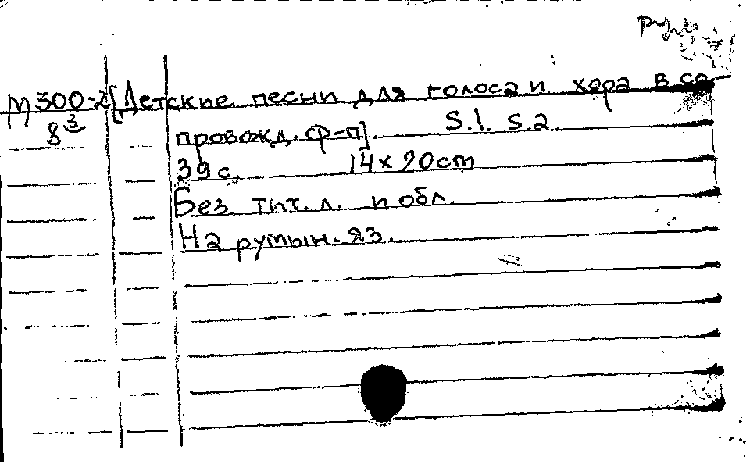 М 300-2 [Детские песни для голоса и хора в со
8³ провожд. ф-п]. S.l. s.a
39 с. 14 x 20 cm
Без тит. л. и обл.
На румын. яз.